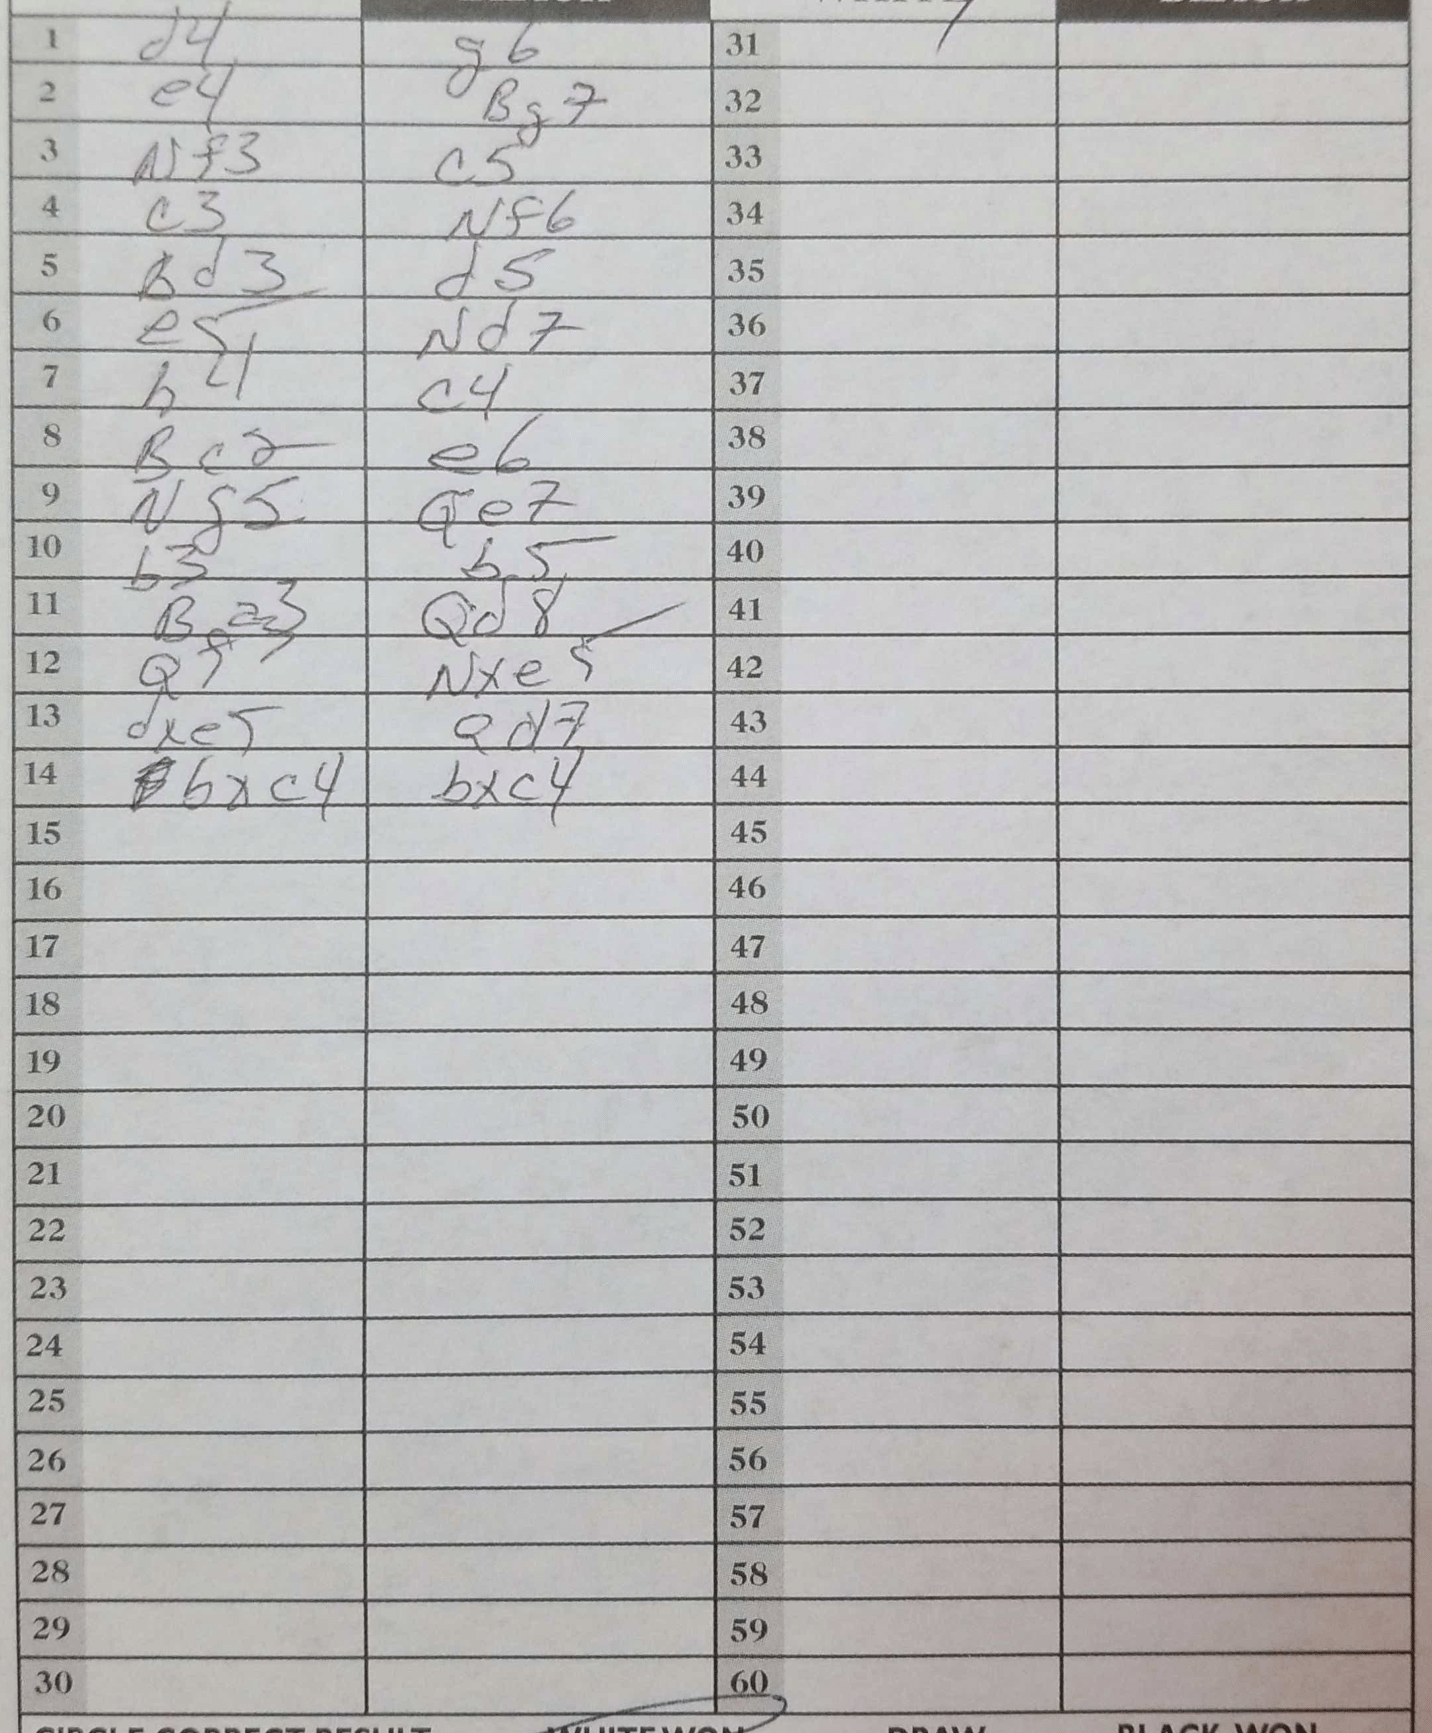 1 d4 g6 31
2 e4 Bg7 32
3 Nf3 c5 33
4 c3 Nf6 34
5 Bd3 d5 35
6 e5 Nd7 36
7 h4 c4 37
8 Bc2 e6 38
9 Ng5 Qe7 39
10 b3 b5 40
11 Ba3 Qd8 41
12 Nxe5 42
13 dxe5 Qd7 43
14 bxc4 bxc4 44
15 45
16 46
17 47
18 48
19 49
20 50
21 51
22 52
23 53
24 54
25 55
26 56
27 57
28 58
29 59
30 60
CIRCLE CORRECT RESULT WHITE WON DRAW BLACK WON